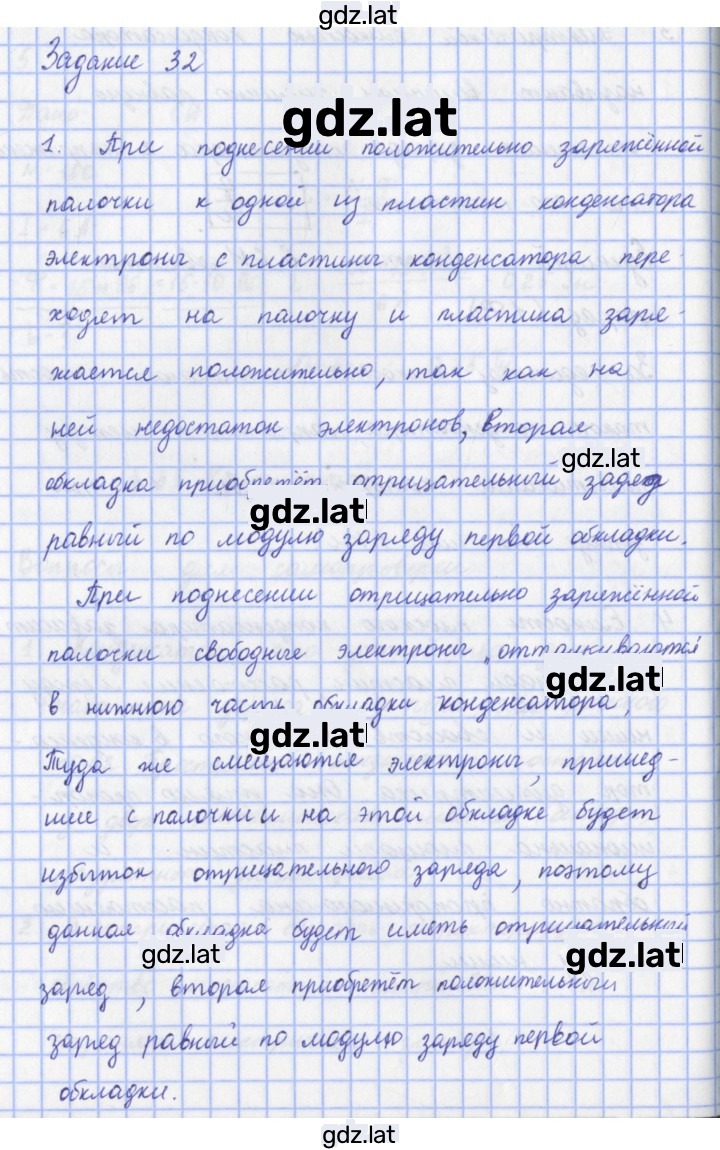 gdz.lat
Задание 32
gdz.lat
1. При поднесении положительно заряжённой
палочки к одной из пластин конденсатора
электроны с пластины конденсатора пере-
ходят на палочку и пластина заря-
жается положительно, так как на
ней недостаток электронов, вторая
gdz.lat
обкладка приобретёт отрицательный заряд
gdz.lat
равный по модулю заряду первой обкладки.
При поднесении отрицательно заряжённой
палочки свободные электроны отталкиваются
gdz.lat
в нижнюю часть обкладки конденсатора,
gdz.lat
Туда же смещаются электроны, пришед-
шие с палочки и на этой обкладке будет
избыток отрицательного заряда, поэтому
данная обкладка будет иметь отрицательный
gdz.lat
gdz.lat
заряд, вторая приобретёт положительный
заряд равный по модулю заряду первой
обкладки.
gdz.lat